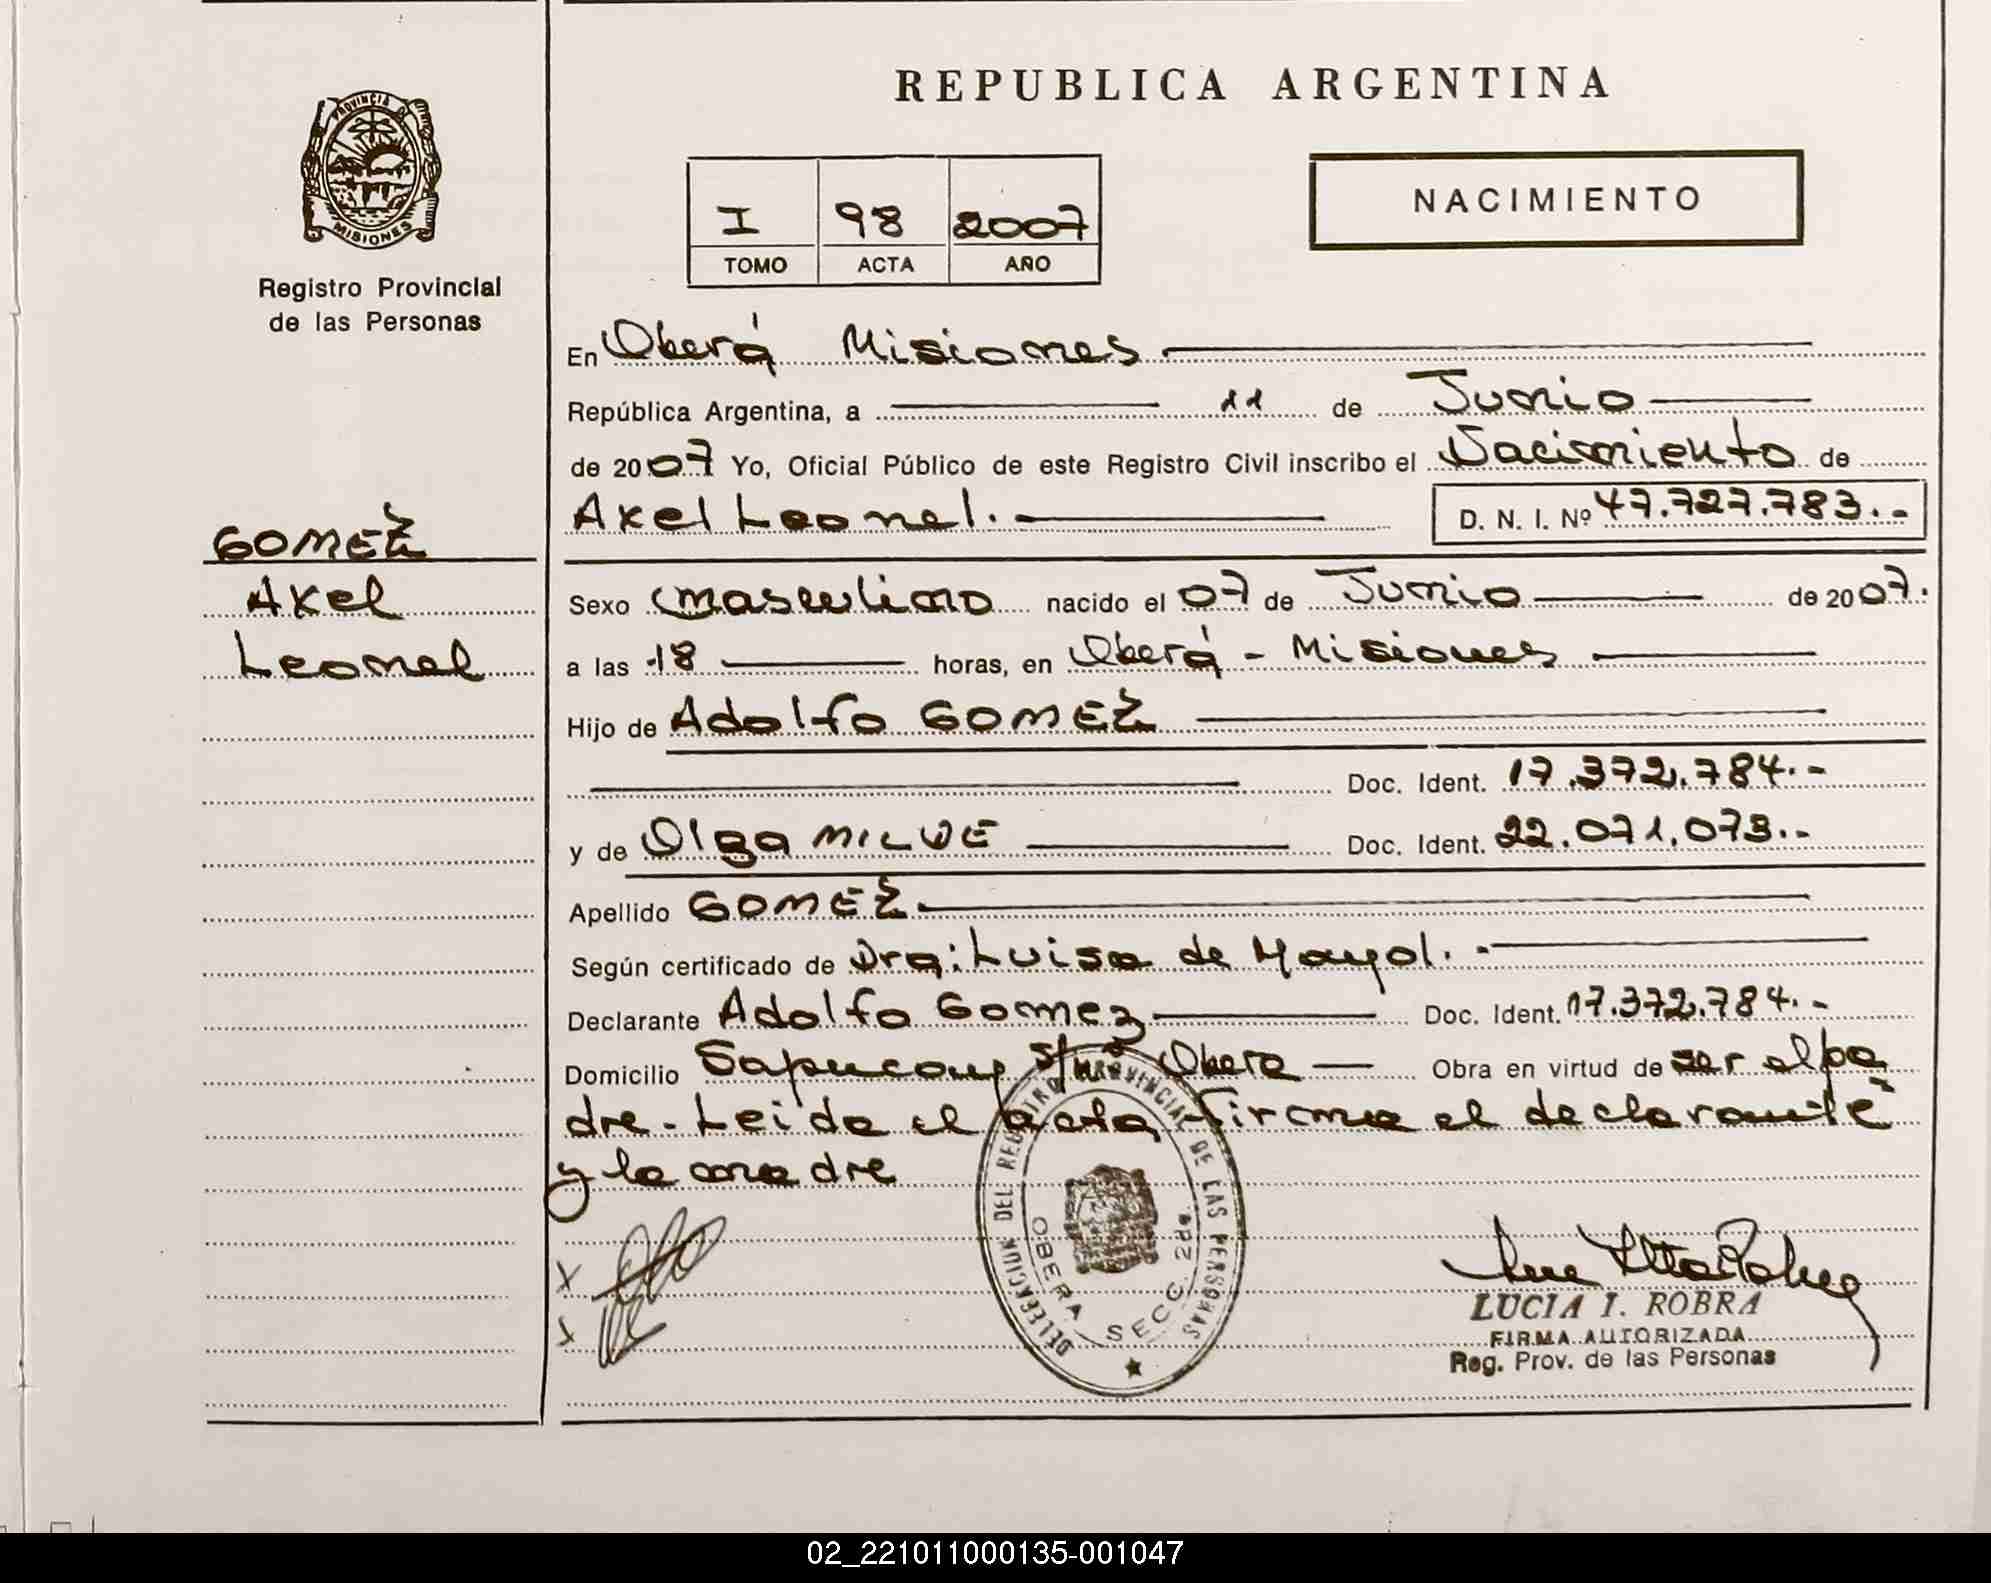 REPUBLICA ARGENTINA
PROVINCIA DE
MISIONES
Registro Provincial
de las Personas
I 98 2007
TOMO ACTA AÑO
NACIMIENTO
En Oberá Misiones
República Argentina, a 11 de Junio
de 2007 Yo, Oficial Público de este Registro Civil inscribo el Nacimiento de
Axel Leonel. D. N. I. Nº 47.727.783.-
GOMEZ
Axel
Leonel
Sexo masculino nacido el 07 de Junio de 2007.
a las 18 horas, en Oberá - Misiones
Hijo de Adolfo GOMEZ
Doc. Ident. 17.372.784.-
y de Olga MILDE Doc. Ident. 22.071.073.-
Apellido GOMEZ
Según certificado de Dra: Luisa de Mayol.-
Declarante Adolfo Gomez Doc. Ident. 17.372.784.-
Domicilio Sapucay s/nº Obera Obra en virtud de ser el pa
dre - Leida el acta firma el declarante
y la madre
DELEGACION DEL REGISTRO PROVINCIAL DE LAS PERSONAS
OBERA SECC. 2da.
LUCIA I. ROBRA
FIRMA AUTORIZADA
Reg. Prov. de las Personas
02_221011000135-001047